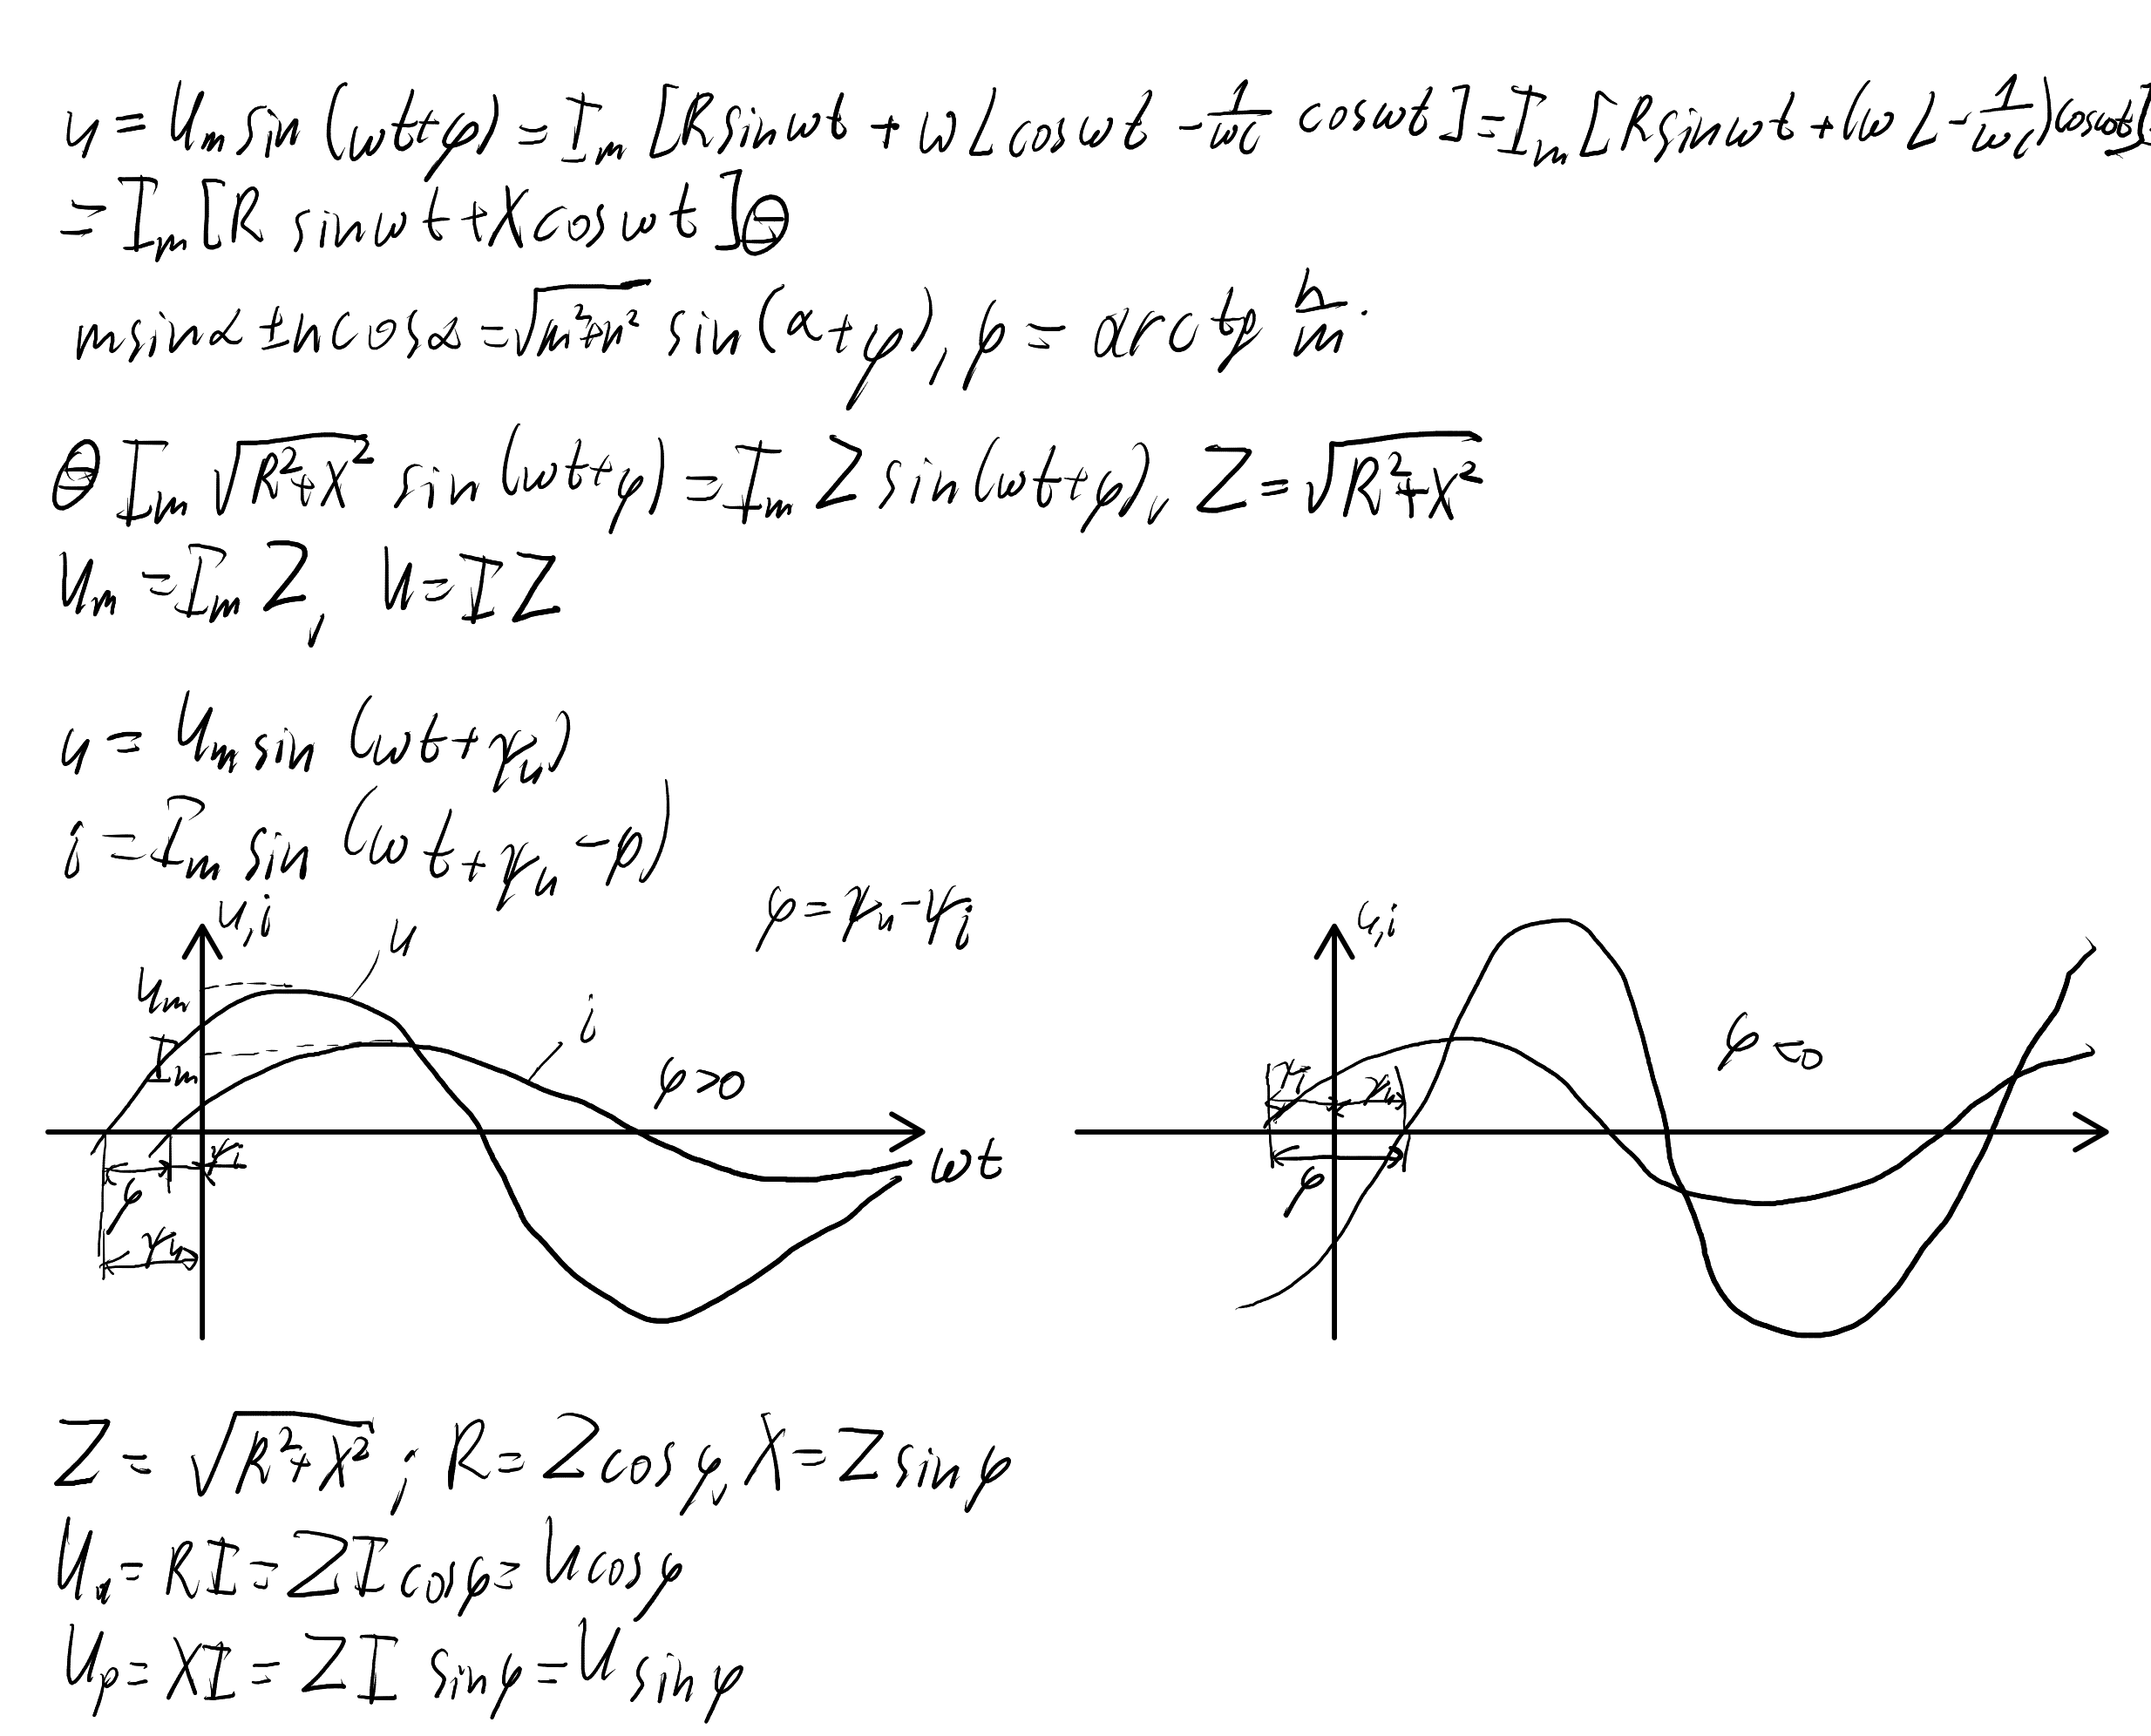 u = Um sin (ωt+φ) = Im [R sinωt + ωL cosωt - 1/ωC cosωt] = Im [R sinωt + (ωL - 1/ωC) cosωt]=
= Im [R sinωt + X cosωt] ⊖
m sinα ± n cosα = √m²+n² sin (α+φ), φ = arctg n/m.
⊖ Im √R²+X² sin (ωt+φ) = Im Z sin (ωt+φ), Z = √R²+X²
Um = Im Z, U = IZ
u = Um sin (ωt+ψu)
i = Im sin (ωt+ψu - φ)
φ = ψu - ψi
u,i
u
Um
i
Im
φ>0
ψi
φ
ψu
ωt
u,i
φ<0
ψi
ψu
φ
Z = √R²+X² ; R = Z cosφ, X = Z sinφ
Ua = RI = ZI cosφ = U cosφ
Up = XI = ZI sinφ = U sinφ